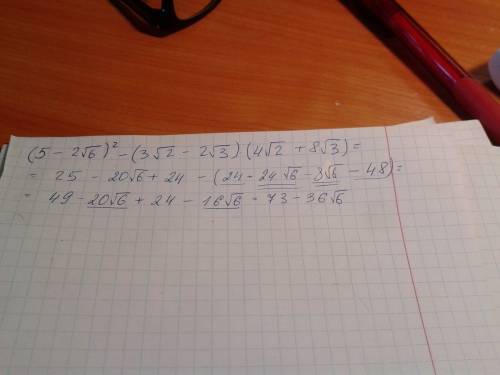 (5 - 2√6)² - (3√2 - 2√3)(4√2 + 8√3) =
= 25 - 20√6 + 24 - (24 - 24√6 - 8√6 - 48) =
= 49 - 20√6 + 24 - 16√6 = 73 - 36√6